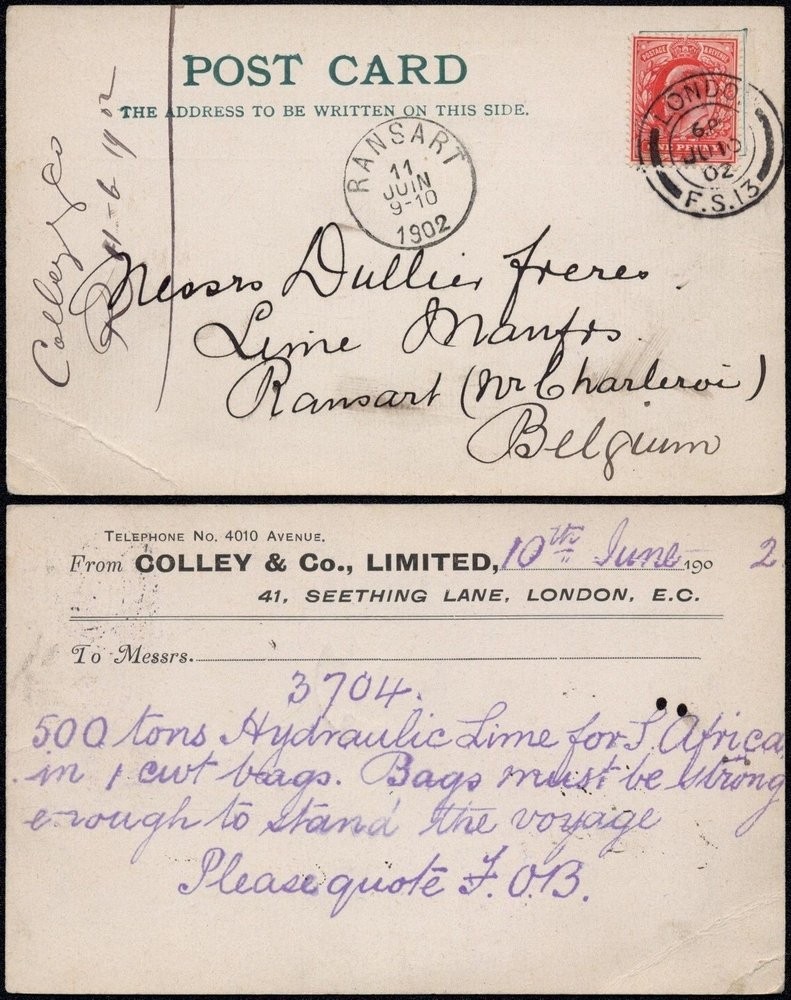 POST CARD
THE ADDRESS TO BE WRITTEN ON THIS SIDE.
POSTAGE & REVENUE
ONE PENNY
LONDON
JU 10
02
F.S.13
RANSART
11
JUIN
9-10
1902
Colley & Co
11-6 1902
Messrs Dullier freres.
Lime Manfrs.
Ransart (Nr Charleroi)
Belgium
TELEPHONE No. 4010 AVENUE.
From COLLEY & Co., LIMITED, 10th June 1902
41, SEETHING LANE, LONDON, E.C.
To Messrs.
3704.
500 tons Hydraulic Lime for S. Africa
in 1 cwt bags. Bags must be strong
enough to stand the voyage
Please quote F.O.B.